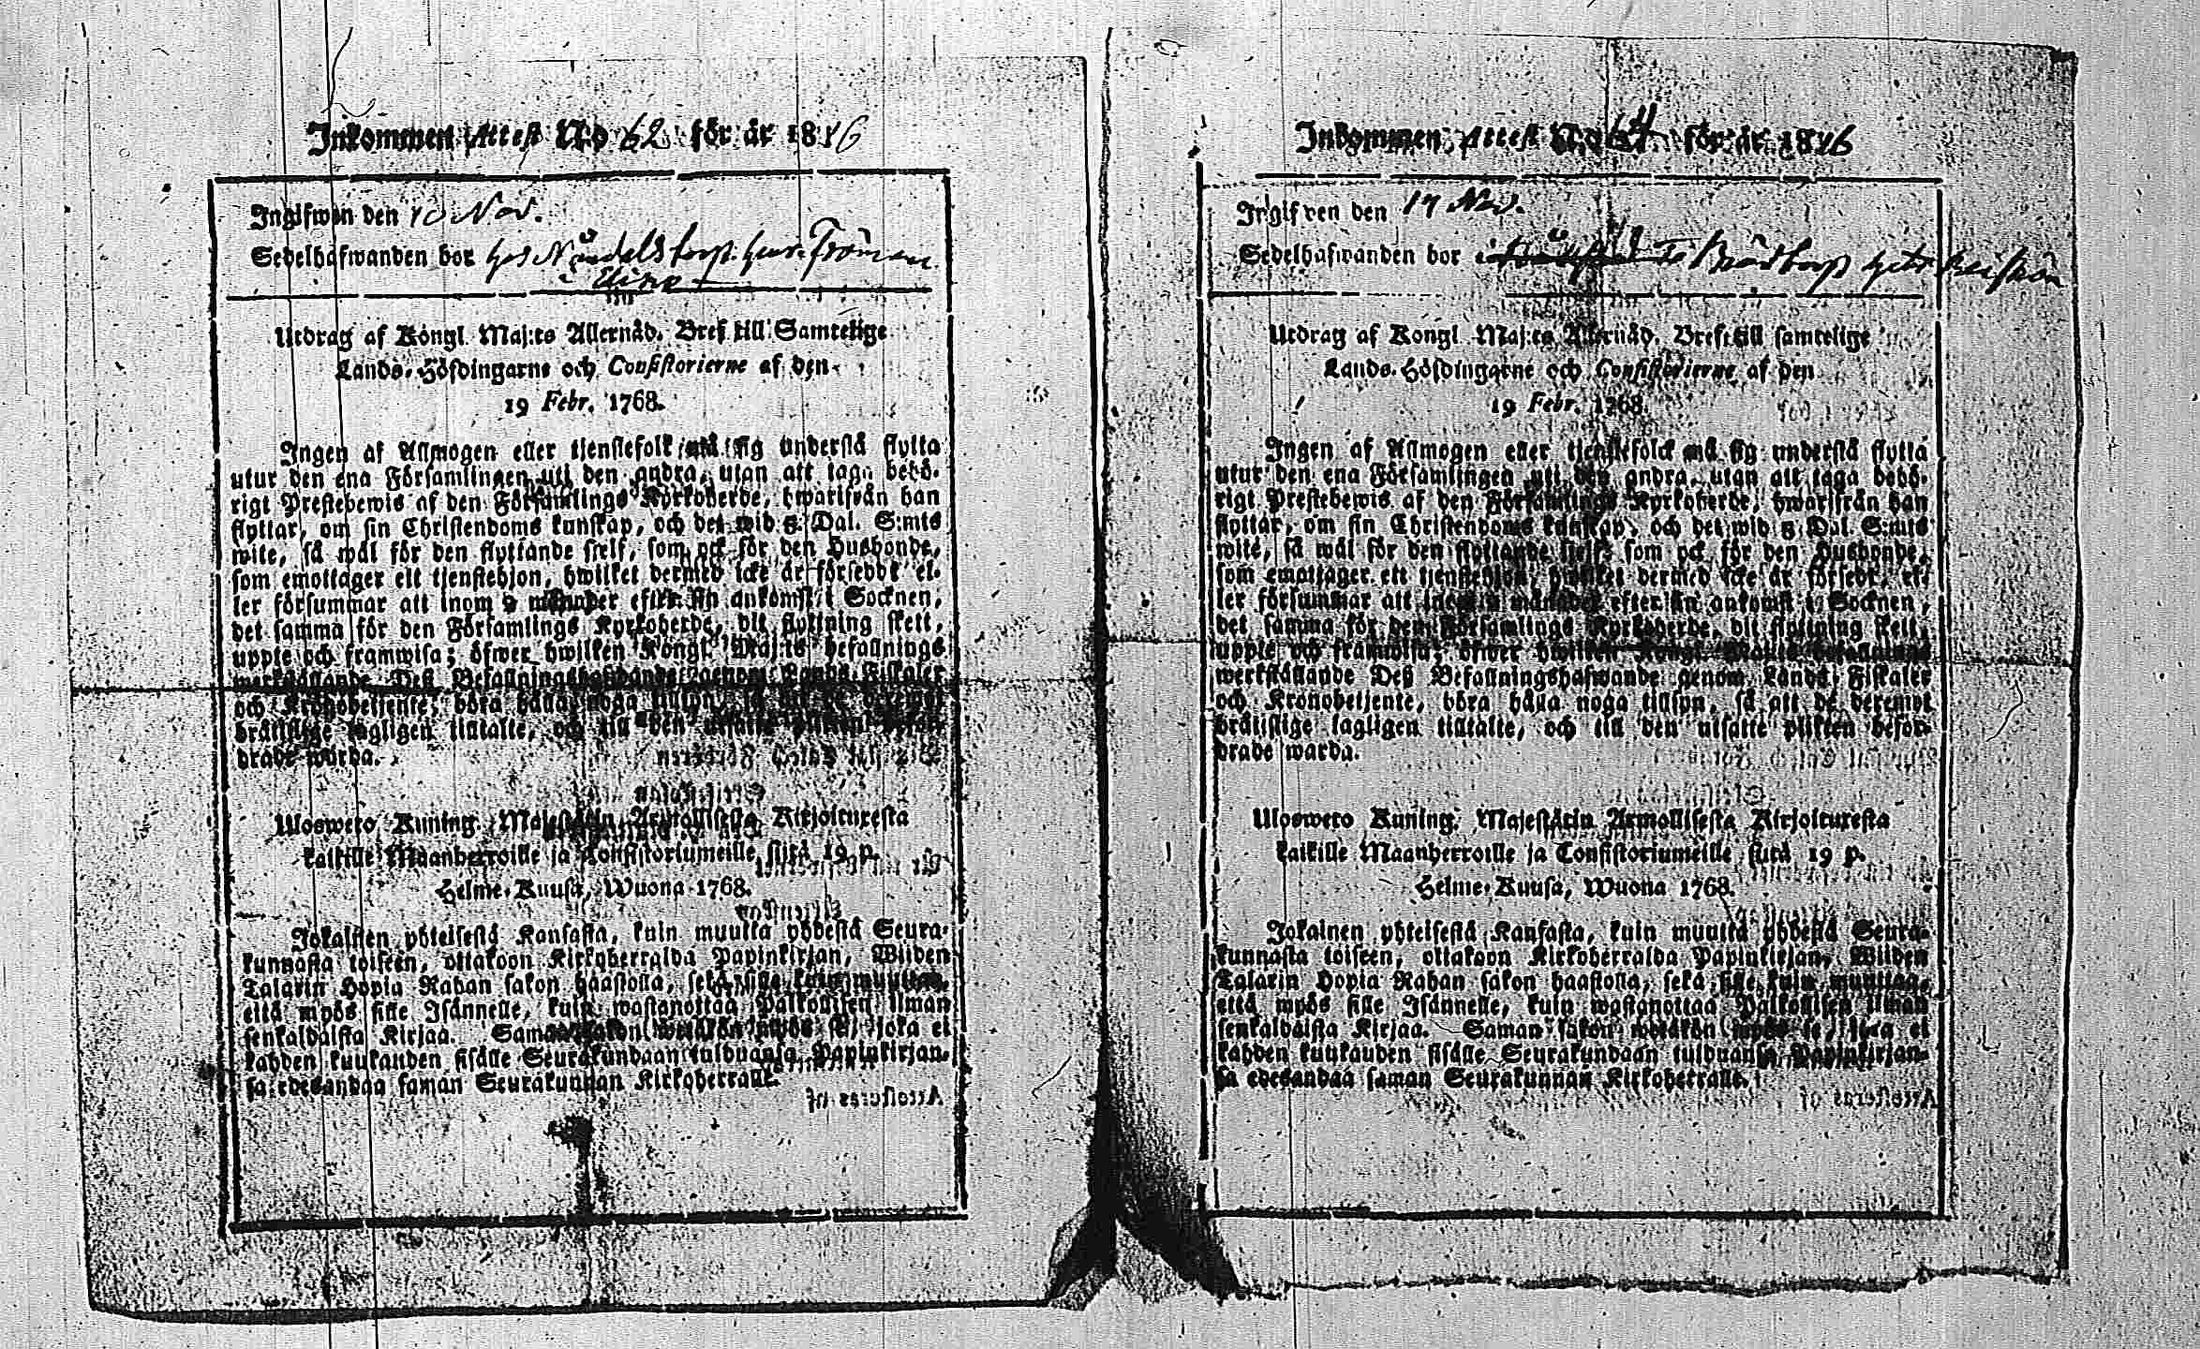 Inkommen Attest N:o 62 för år 1816
Ingifwen den 10 Nov.
Sedelhafwanden bor hos
Utdrag af Kongl. Maj:ts Allernåd. Bref till Samtelige
Lands-Höfdingarne och Consistorierne af den
19 Febr. 1768.
Ingen af Allmogen eller tjenstefolk må sig understå flytta
utur den ena Församlingen uti den andra, utan att taga behö-
rigt Prestebewis af den Församlings Kyrkoherde, hwarifrån han
flyttar, om sin Christendoms kunskap, och det wid 5 Dal. S:mts
wite, så wäl för den flyttande sielf, som ock för den Husbonde,
som emottager ett tjenstehjon, hwilket dermed icke är försedt el-
ler försummar att inom 2 månader efter sin ankomst i Socknen,
det samma för den Församlings Kyrkoherde, dit flyttning skett,
uppte och framwisa; öfwer hwilken Kongl. Maj:ts befallnings
werkställande Deß Befallningshafwande genom Lands Fiskaler
och Kronobetjente, böra hålla noga tillsyn, så att de deremot
brottslige lagligen tilltalte, och till den utsatte plikten befor-
drade warda.
Uloswето Kuning. Majestätin Armollisesta Kirjoituxesta
kaikille Maanherroille ja Consistoriumeille siitä 19 p.
Helme-Kuusa, Wuona 1768.
Jokainen yhteisestä Kansasta, kuin muutta yhdestä Seura-
kunnasta toiseen, ottakoon Kirkoherralda Papinkirjan, Wiiden
Talarin Hopia Rahan sakon haastolla, sekä sille kuin muuttaa,
että myös sille Isännelle, kuin wastanottaa Palkollisen ilman
senkaldaista Kirjaa. Saman sakon wetäkön myös se, joka ei
kahden kuukauden sisälle Seurakundaan tulduansa Papinkirjan-
sa edesandaa saman Seurakunnan Kirkoherralle.
Inkommen Attest N:o 64 för år 1816
Ingifven den 17 Nov.
Sedelhafwanden bor
Utdrag af Kongl. Maj:ts Allernåd. Bref till samtelige
Lands-Höfdingarne och Consistorierne af den
19 Febr. 1768.
Ingen af Allmogen eller tjenstefolck må sig understå flytta
utur den ena Församlingen uti den andra, utan att taga behö-
rigt Prestebewis af den Församlings Kyrkoherde, hwarifrån han
flyttar, om sin Christendoms kunskap, och det wid 5 Dal. S:mts
wite, så wäl för den flyttande sielf, som ock för den Husbonde,
som emottager ett tjenstehjon, hwilket dermed icke är försedt, el-
ler försummar att inom 2 månader efter sin ankomst i Socknen,
det samma för den Församlings Kyrkoherde, dit flyttning skett,
uppte och framwisa; öfwer hwilken Kongl. Maj:ts befallnings
werkställande Deß Befallningshafwande genom Lands Fiskaler
och Kronobetjente, böra hålla noga tillsyn, så att de deremot
brottslige lagligen tilltalte, och till den utsatte plikten befor-
drade warda.
Uloswето Kuning. Majestätin Armollisesta Kirjoituxesta
kaikille Maanherroille ja Consistoriumeille siitä 19 p.
Helme-Kuusa, Wuona 1768.
Jokainen yhteisestä Kansasta, kuin muutta yhdestä Seura-
kunnasta toiseen, ottakoon Kirkoherralda Papinkirjan, Wiiden
Talarin Hopia Rahan sakon haastolla, sekä sille kuin muuttaa,
että myös sille Isännelle, kuin wastanottaa Palkollisen ilman
senkaldaista Kirjaa. Saman sakon wetäkön myös se, joka ei
kahden kuukauden sisälle Seurakundaan tulduansa Papinkirjan-
sa edesandaa saman Seurakunnan Kirkoherralle.